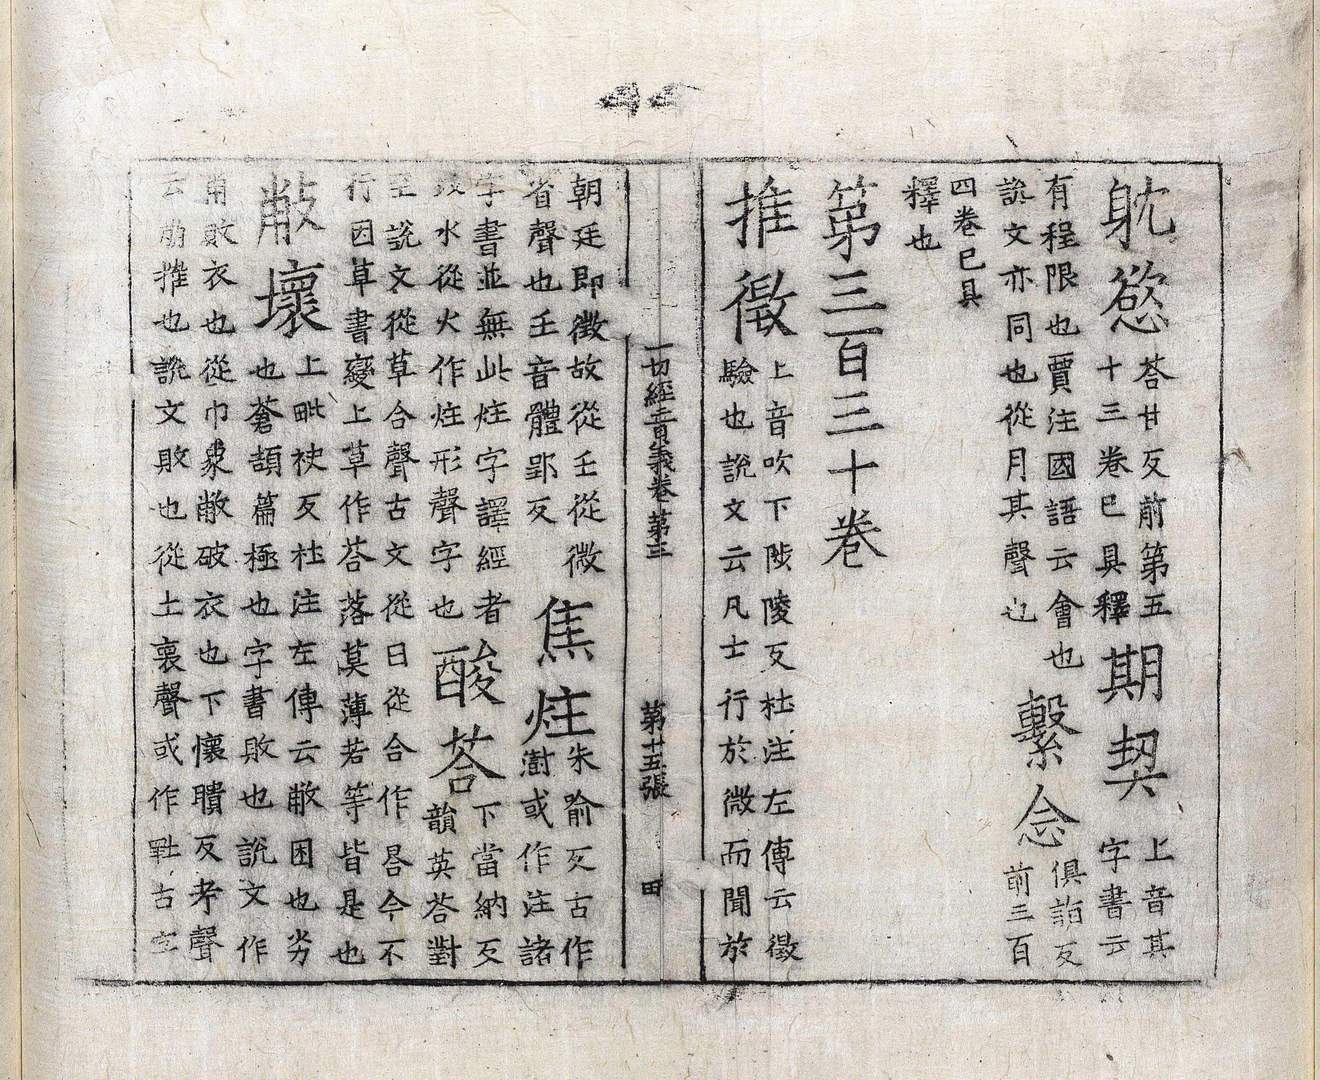 躭慾
荅甘反前第五
十三卷已具釋
期契
上音其
字書云
有程限也賈注國語云會也
說文亦同也從月其聲也
繫念
俱詣反
前三百
四卷已具
釋也
第三百三十卷
推徵
上音吹下陟陵反杜注左傳云徵
驗也說文云凡士行於微而聞於
一切經音義卷第三 第十五張 田
朝廷即徵故從壬從微
省聲也壬音體郢反
焦炷
朱喻反古作
澍或作注諸
字書並無此炷字譯經者
水從火作炷形聲字也
酸荅
下當納反
韻英荅對
至說文從草合聲古文從日從合作畣今不
行因草書變上草作荅落莫薄若等皆是也
敝壞
上毗袂反杜注左傳云敝困也劣
也蒼頡篇極也字書敗也說文作
㡀敗衣也從巾象敝破衣也下懷聵反考聲
云崩摧也說文敗也從土褱聲或作古字